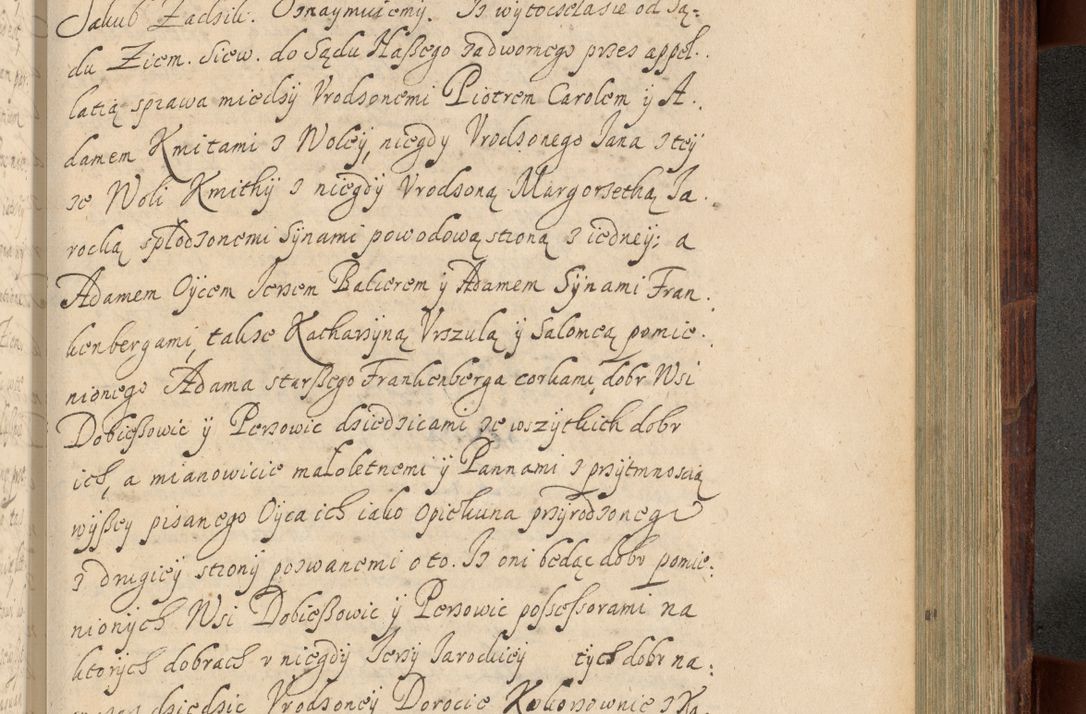 Jakub Zadzik. Oznaymuiemy. Iz wytoczełasie od Są=
du Ziem. Siew. do Sądu Naßego zadwornego przez appel.
latią sprawa miedzy Vrodzonemi Piotrem Carolem y A.
damem Kmitami z Woley, niegdy Vrodzonego Jana z tey
ze Woli Kmithy z niegdy Vrodzoną Margorzethą Ja.
rocką spłodzonemi Synami powodową stroną z iedney; a
Adamem Oycem Jerzem Balcerem y Adamem Synami Fran.
kenbergami, takze Katharzyną Vrszulą y Salomeą pomie.
nionego Adama starßego Frankenberga corkami, dobr Wsi
Dobießowic y Perzowic dziedzicami ze wszytkich dobr
ich, a mianowicie małoletnemi y Pannami z przytmnoscią
wyßey pisanego Oyca ich iako Opiekuna przyrodzonego
z drugiey strony pozwanemi o to. Iz oni będąc dobr pomie:
nionych Wsi Dobießowic y Perzowic possessorami na
ktorych dobrach v niegdy Jerzy Jarockiey tych dobr na:
dziedzic Vrodzoney Dorocie Kokorzownie z Ka